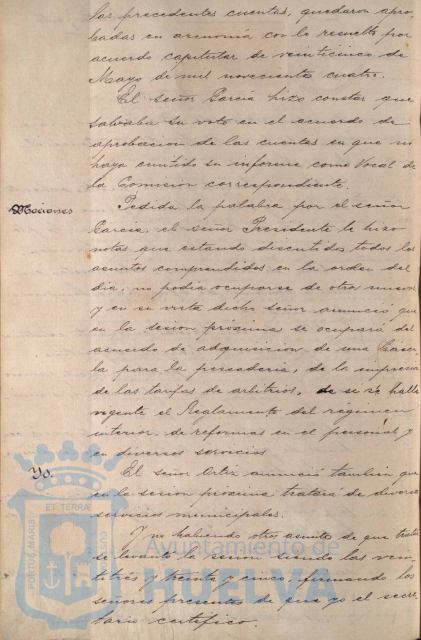 las precedentes cuentas, quedaron apro-
badas en armonía con lo resuelto por
acuerdo capitular de veinticinco de
Mayo de mil novecientos cuatro.
El señor García hizo constar que
salvaba su voto en el acuerdo de
aprobacion de las cuentas en que no
haya emitido su informe como Vocal de
la Comisión correspondiente.
Mociones
Pedida la palabra por el señor
García, el señor Presidente le hizo
notar que estando discutidos todos los
asuntos comprendidos en la orden del
dia, no podía ocuparse de otros nuevos
y en su vista dicho señor anunció que
en la sesion próxima se ocupará del
acuerdo de adquisicion de una
la para la pescadería, de la
de las tarifas de arbitrios, de si se halla
vigente el Reglamento del régimen
interior, de reformas en el personal y
en diversos servicios
Yd.
El señor Ortiz anunció tambien que
en la sesion proxima tratará de diversos
servicios municipales.
Y no habiendo otros asuntos de que tratar
se levantó la sesion siendo las vein-
titrés y treinta y cinco, firmando los
señores presentes de que yo el secre-
tario certifico.
PORTUS MARIS ET TERRAE CUSTODIA
Ayuntamiento de
HUELVA